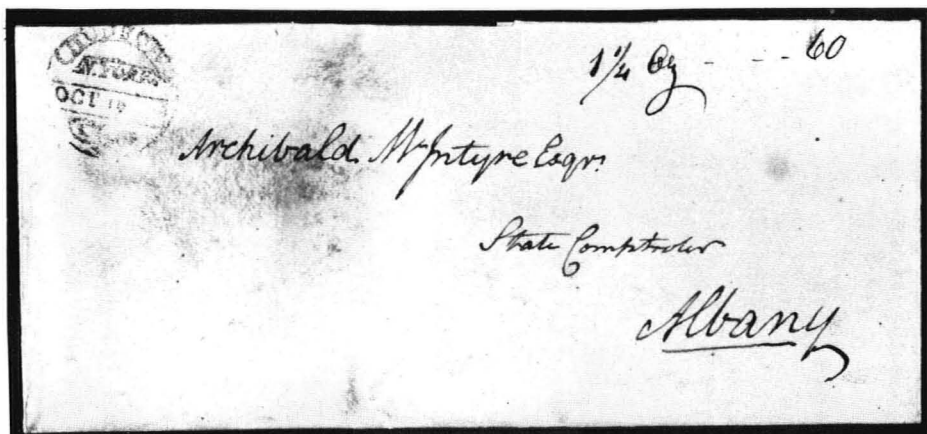 N.YORK
OCT
1¼ Oz - - - 60
Archibald McIntyre Esqr.
State Comptroller
Albany